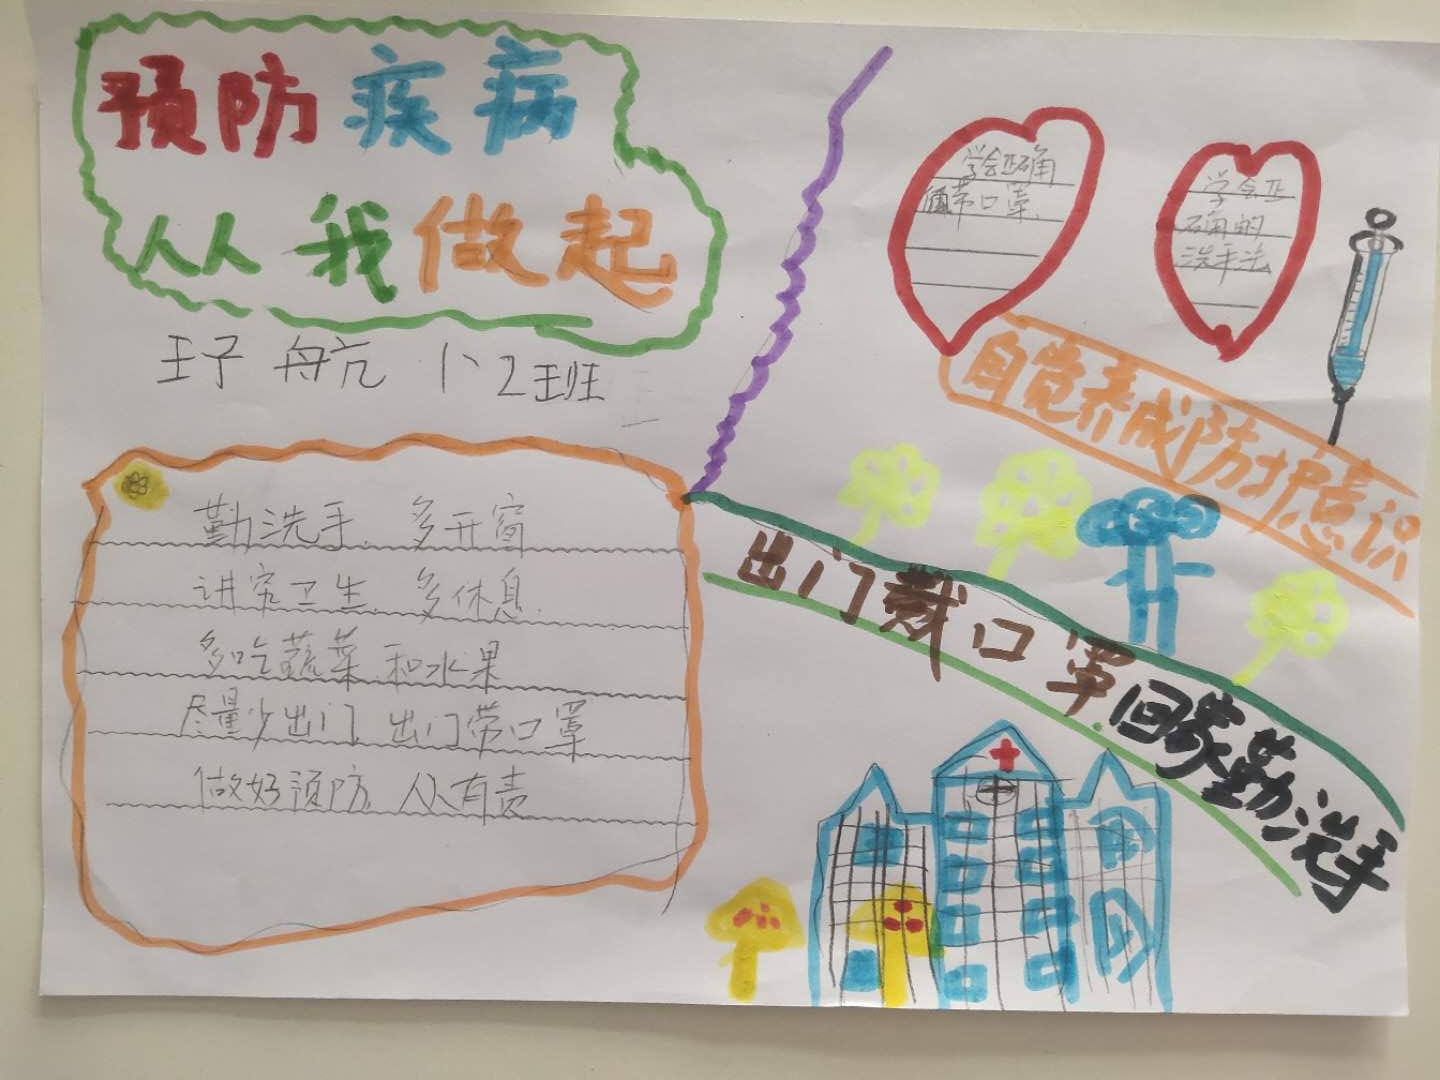 预防疾病
从从我做起
王子航 1、2班
勤洗手、多开窗
讲究卫生、多休息、
多吃蔬菜和水果
尽量少出门、出门带口罩
做好预防、人人有责
学会正确
佩带口罩、
学会正
确的
洗手法
自觉养成防护意识
出门戴口罩回家勤洗手